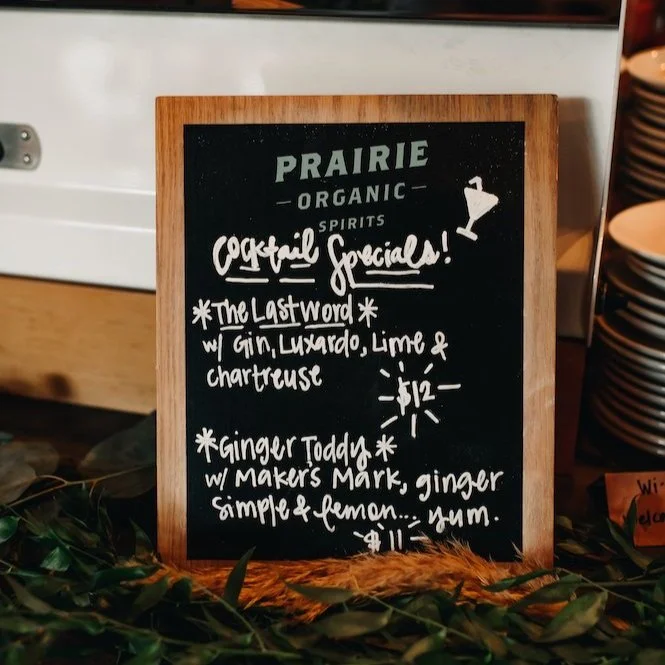 PRAIRIE
- ORGANIC -
SPIRITS
Cocktail Specials!
*The Last Word*
w/ Gin, Luxardo, Lime &
chartreuse
$12
*Ginger Toddy*
w/ Maker's Mark, ginger
Simple & lemon... yum.
$11
Wi-